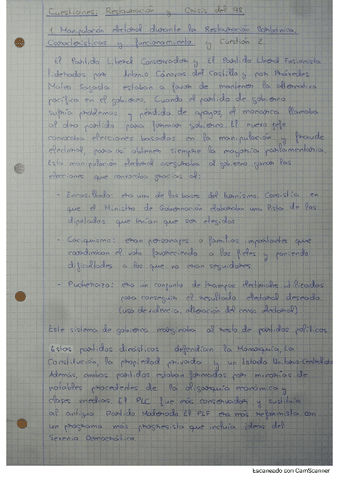 Cuestiones: Restauración y Crisis del 98
1. Manipulación electoral durante la Restauración Borbónica.
Características y funcionamiento y Cuestión 2.
El Partido Liberal Conservador y El Partido Liberal Fusionista
liderados por Antonio Cánovas del Castillo y por Práxedes
Mateo Sagasta estaban a favor de mantener la alternativa
pacífica en el gobierno. Cuando el partido de gobierno
sufría problemas y pérdida de apoyos el monarca llamaba
al otro partido para formar gobierno. El nuevo jefe
convocaba elecciones basadas en la manipulación y fraude
electoral, para así obtener siempre la mayoría parlamentaria.
Esta manipulación electoral aseguraba al gobierno ganar las
elecciones que convocaba gracias al:
- Encasillado: era una de las bases del turnismo. Consistía en
que el Ministro de Gobernación elaboraba una lista de los
diputados que tenían que ser elegidos
- Caciquismo: eran personajes o familias importantes que
coordinaban el voto favoreciendo a los fieles y poniendo
dificultades a los que no eran seguidores
- Pucherazo: era un conjunto de trampas electorales utilizadas
para conseguir el resultado electoral deseado.
(uso de violencia, alteración del censo electoral)
Este sistema de gobierno marginaba al resto de partidos políticos.
Estos partidos dinásticos defendían la Monarquía, la
Constitución, la propiedad privada y un Estado Unitario-Centralista
Además, ambos partidos estaban formados por minorías de
notables procedentes de la oligarquía económica y
clases medias. El PLC fue más conservador y sustituía
al antiguo Partido Moderado. El PLF era más reformista con
un programa más progresista que incluía ideas del
Sexenio Democrático.
Escaneado con CamScanner